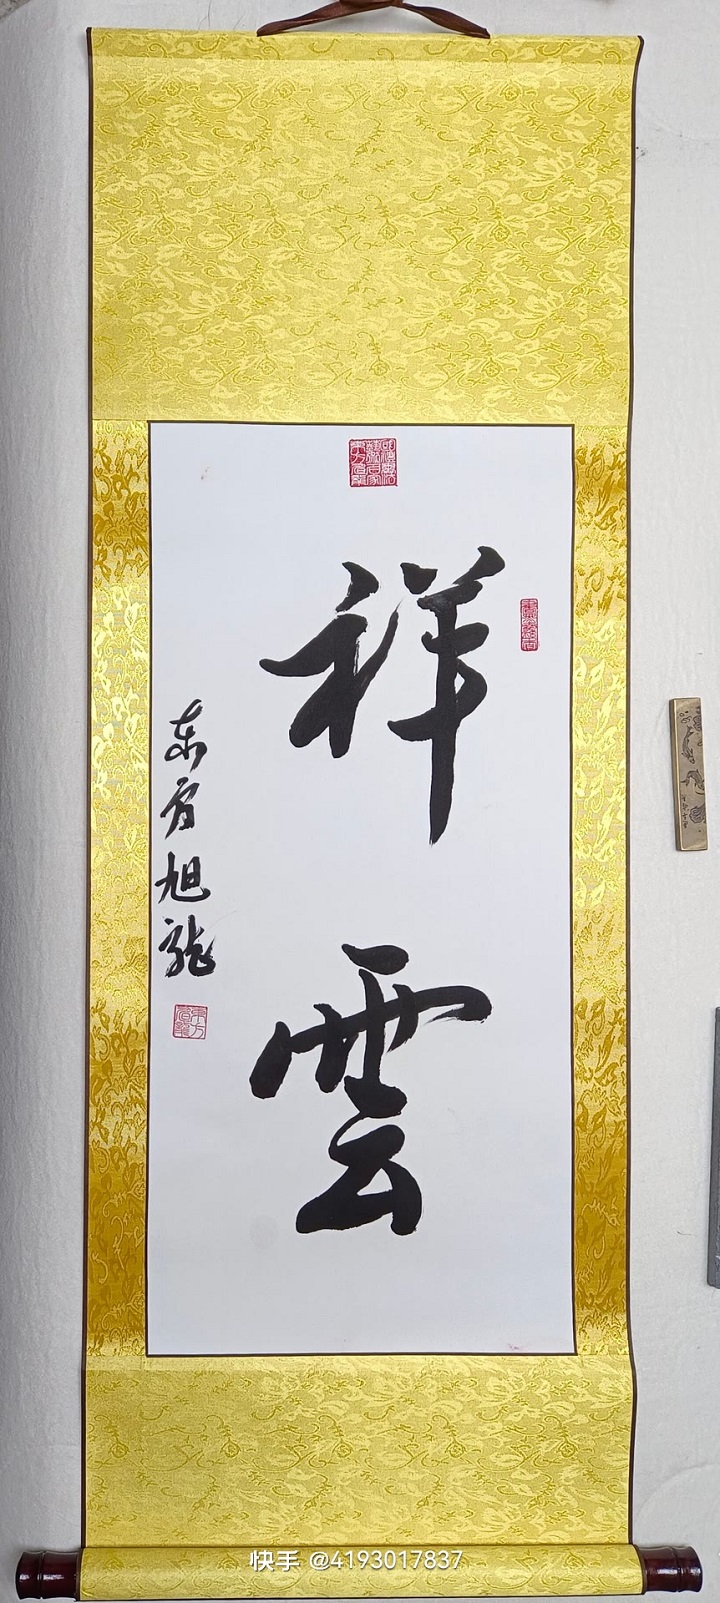 祥雲
东方旭龙
快手 @4193017837